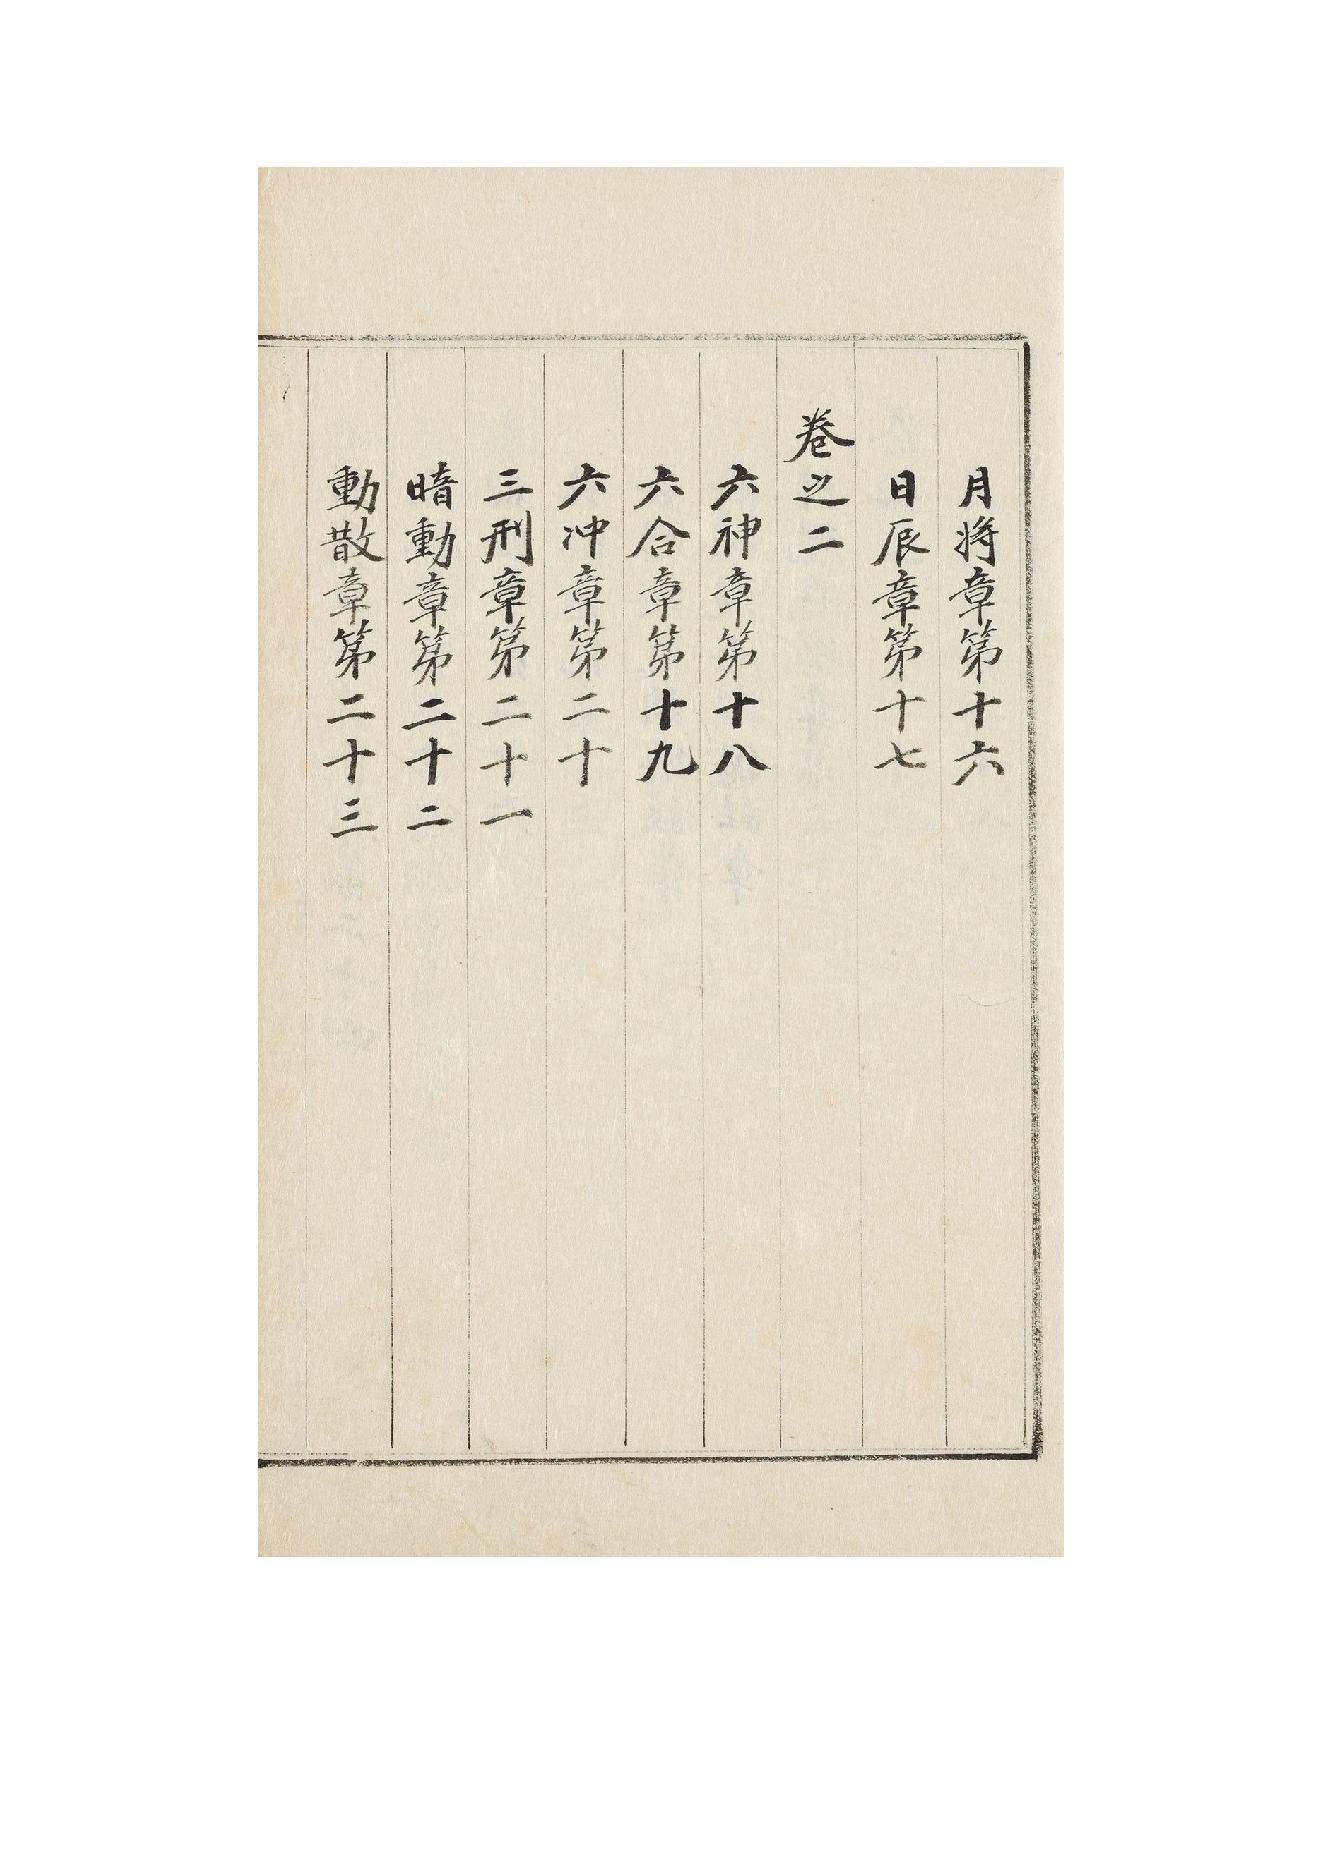 月将章第十六
日辰章第十七
卷之二
六神章第十八
六合章第十九
六冲章第二十
三刑章第二十一
暗動章第二十二
動散章第二十三